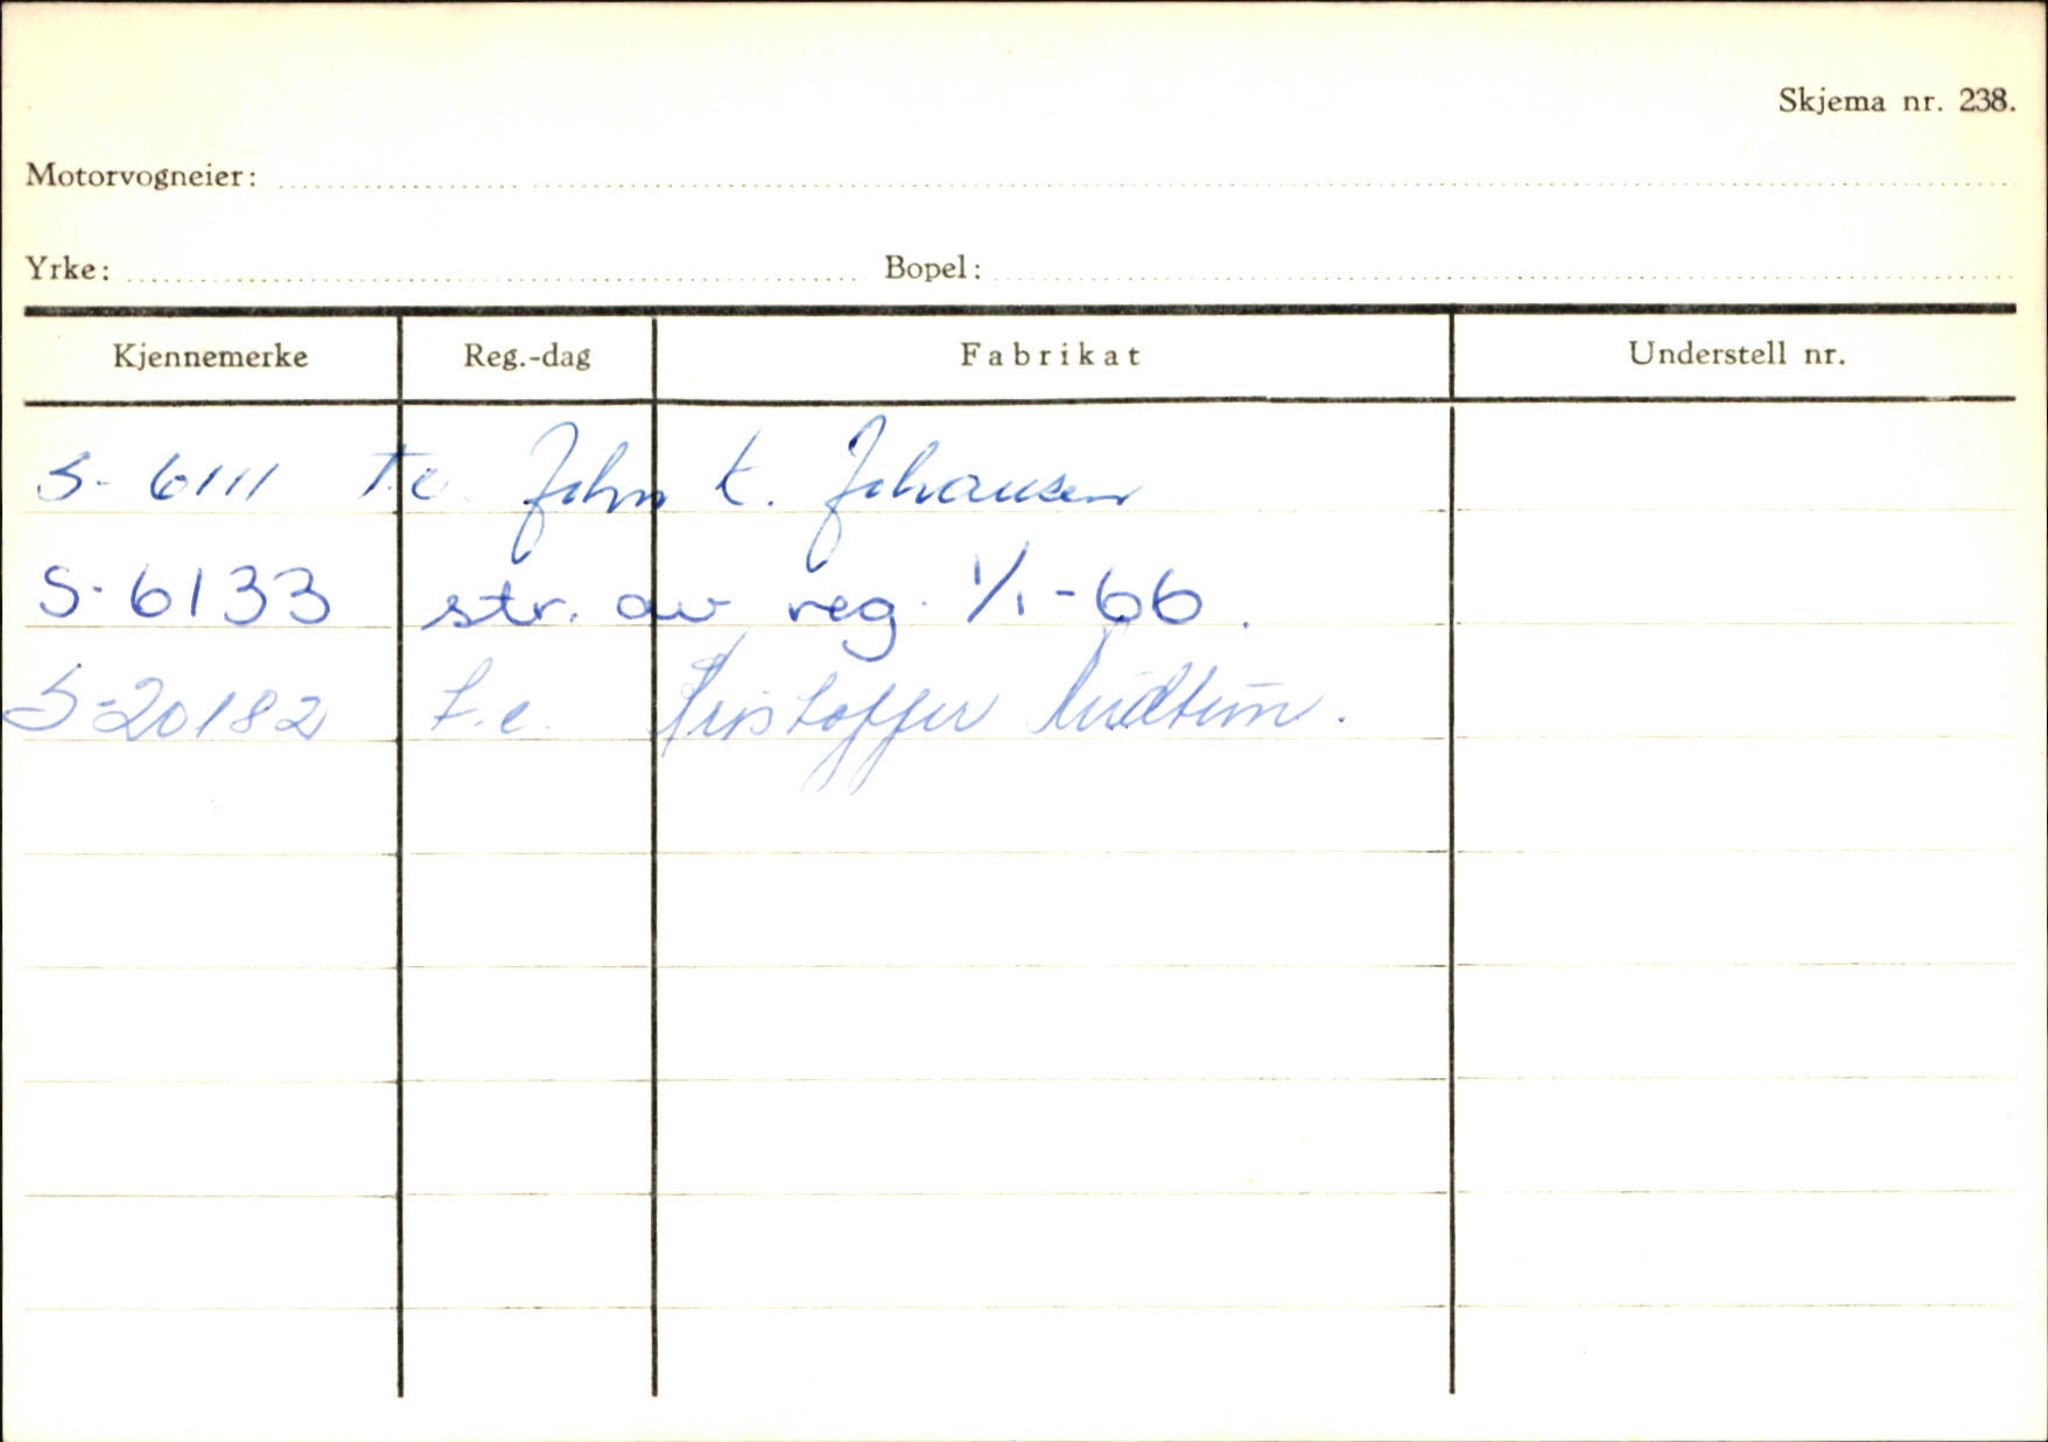 Skjema nr. 238.
Motorvogneier:
Yrke: Bopel:
Kjennemerke Reg.-dag Fabrikat Understell nr.
S-6111 T.e. John K. Johansen
S-6133 str. av reg. 1/1-66.
S-20182 t.e. Kristoffer Midtun.